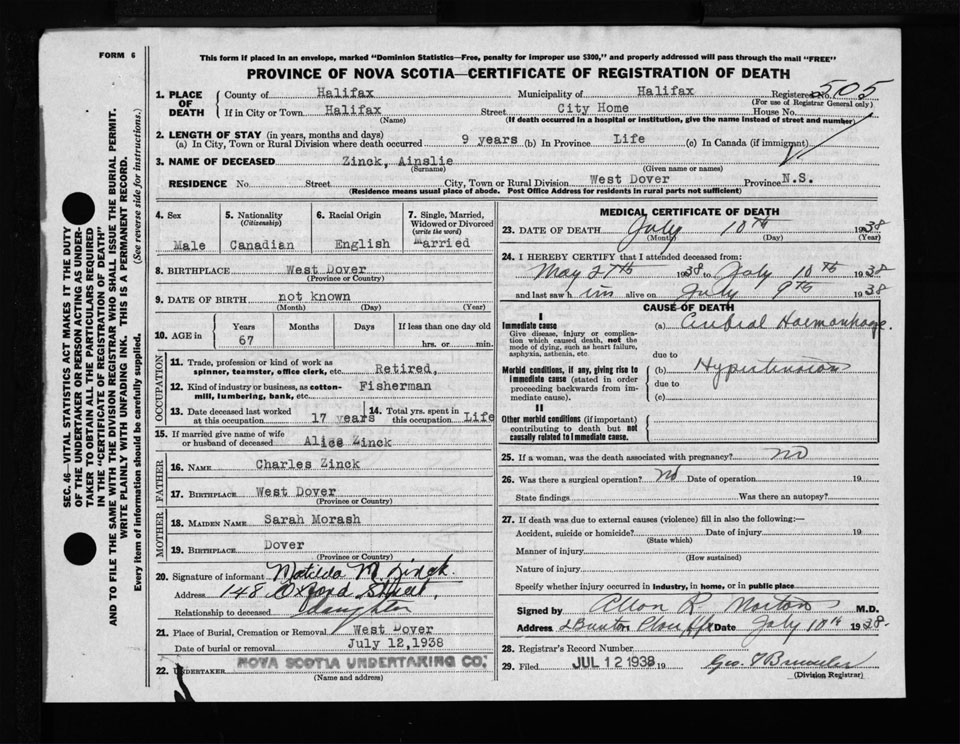 FORM 6
This form if placed in an envelope, marked "Dominion Statistics—Free, penalty for improper use $300," and properly addressed will pass through the mail "FREE"
PROVINCE OF NOVA SCOTIA—CERTIFICATE OF REGISTRATION OF DEATH
SEC. 46—VITAL STATISTICS ACT MAKES IT THE DUTY
OF THE UNDERTAKER OR PERSON ACTING AS UNDER-
TAKER TO OBTAIN ALL THE PARTICULARS REQUIRED
IN THE "CERTIFICATE OF REGISTRATION OF DEATH"
AND TO FILE THE SAME WITH THE DIVISION REGISTRAR WHO SHALL ISSUE THE BURIAL PERMIT.
WRITE PLAINLY WITH UNFADING INK. THIS IS A PERMANENT RECORD.
Every item of information should be carefully supplied. (See reverse side for instructions.)
1. PLACE OF DEATH County of Halifax Municipality of Halifax Registered No. 505
(For use of Registrar General only)
If in City or Town Halifax Street City Home House No.
(Name) (If death occurred in a hospital or institution, give the name instead of street and number)
2. LENGTH OF STAY (in years, months and days)
(a) In City, Town or Rural Division where death occurred 9 years (b) In Province Life (c) In Canada (if immigrant)
3. NAME OF DECEASED Zinck, Ainslie
(Surname) (Given name or names)
RESIDENCE No. Street City, Town or Rural Division West Dover Province N.S.
(Residence means usual place of abode. Post Office Address for residents in rural parts not sufficient)
4. Sex Male
5. Nationality (Citizenship) Canadian
6. Racial Origin English
7. Single, Married, Widowed or Divorced (write the word) Married
8. BIRTHPLACE West Dover
(Province or Country)
9. DATE OF BIRTH not known
(Month) (Day) (Year)
10. AGE in Years Months Days If less than one day old
67 hrs. or min.
OCCUPATION
11. Trade, profession or kind of work as spinner, teamster, office clerk, etc. Retired,
12. Kind of industry or business, as cotton-mill, lumbering, bank, etc. Fisherman
13. Date deceased last worked at this occupation 17 years 14. Total yrs. spent in this occupation Life
15. If married give name of wife or husband of deceased Alice Zinck
FATHER
16. NAME Charles Zinck
17. BIRTHPLACE West Dover
(Province or Country)
MOTHER
18. MAIDEN NAME Sarah Morash
19. BIRTHPLACE Dover
(Province or Country)
20. Signature of informant Matilda M. Zinck.
Address 148 Oxford Street,
Relationship to deceased daughter
21. Place of Burial, Cremation or Removal West Dover
Date of burial or removal July 12, 1938
22. UNDERTAKER NOVA SCOTIA UNDERTAKING CO.
(Name and address)
MEDICAL CERTIFICATE OF DEATH
23. DATE OF DEATH July 10th 1938
(Month) (Day) (Year)
24. I HEREBY CERTIFY that I attended deceased from:
May 27th 1938 to July 10th 1938
and last saw him alive on July 9th 1938
CAUSE OF DEATH
I
Immediate cause
Give disease, injury or complication which caused death, not the mode of dying, such as heart failure, asphyxia, asthenia, etc.
(a) Cerebral Haemorrhage.
due to
Morbid conditions, if any, giving rise to immediate cause (stated in order proceeding backwards from immediate cause).
(b) Hypertension
due to
(c)
II
Other morbid conditions (if important) contributing to death but not causally related to immediate cause.
25. If a woman, was the death associated with pregnancy? no
26. Was there a surgical operation? no Date of operation 19
State findings Was there an autopsy?
27. If death was due to external causes (violence) fill in also the following:—
Accident, suicide or homicide? Date of injury 19
(State which)
Manner of injury
(How sustained)
Nature of injury
Specify whether injury occurred in industry, in home, or in public place
Signed by R Morton M.D.
Address Date July 10th 1938.
28. Registrar's Record Number
29. Filed JUL 12 1938 19 Geo.
(Division Registrar)